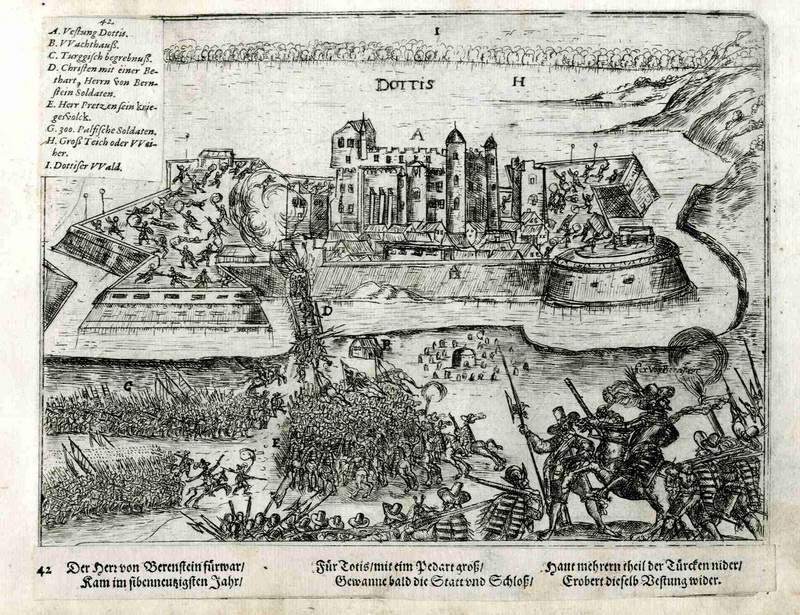 42.
A. Vestung Dottis.
B. VVachthauß.
C. Turggisch begrebnuß.
D. Christen mit einer Be-
thart, Herrn von Bern-
stein Soldaten.
E. Herr Pretzen sein krie-
gsvolck.
G. 300. Palfische Soldaten.
H. Groß Teich oder VVei-
her.
I. Dottiser VVald.
I
DOTTIS
H
A
D
B
G
E
42 Der Herr von Berenstein fürwar/
Kam im sibenneutzigsten Jahr/
Für Totis/mit eim Pedart groß/
Gewanne bald die Statt vnd Schloß/
Haut mehrern theil der Türcken nider/
Erobert dieselb Vestung wider.